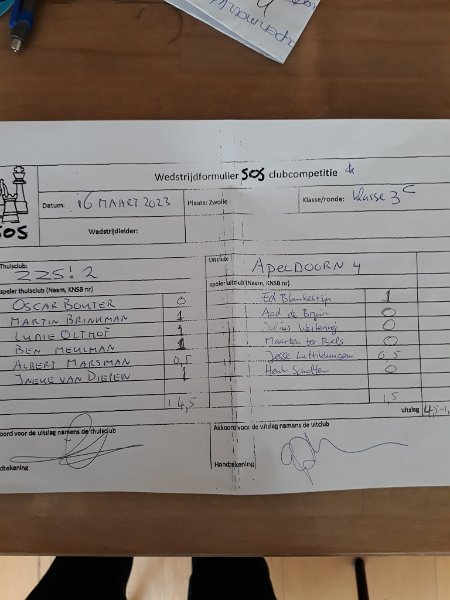 Wedstrijdformulier SOS clubcompetitie
SOS
Datum: 16 MAART 2023 Plaats: Zwolle Klasse/ronde: klasse 3C
Wedstrijdleider:
Thuisclub: ZZS! 2 Uitclub: APELDOORN 4
speler thuisclub (Naam, KNSB nr) speler uitclub (Naam, KNSB nr)
OSCAR BOUTER 0 Ed Blankestijn 1
MARTIN BRINKMAN 1 Aad de Bruijn 0
LUDIE OLTHOF 1 Julius Weitering 0
BEN MEULMAN 1 Maarten ter 0
ALBERT MARSMAN 0,5 Jesse 0,5
INEKE VAN DIEREN 1 Henk Scholten 0
4,5 1,5
uitslag 4,5-1,
koord voor de uitslag namens de thuisclub Akkoord voor de uitslag namens de uitclub
dtekening Handtekening